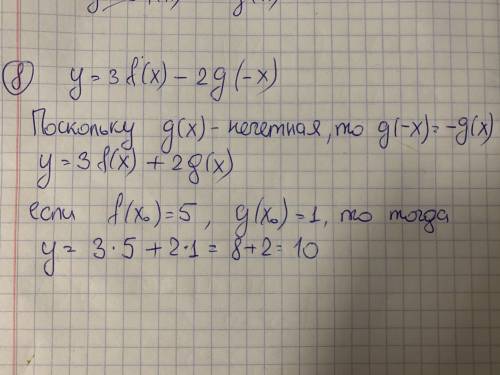 ⑧ y = 3 f(x) − 2g(−x)
Поскольку g(x) - нечетная, то g(−x) = −g(x)
y = 3 f(x) + 2g(x)
если f(x₀) = 5, g(x₀) = 1, то тогда
y = 3·5 + 2·1 = 8+2 = 10